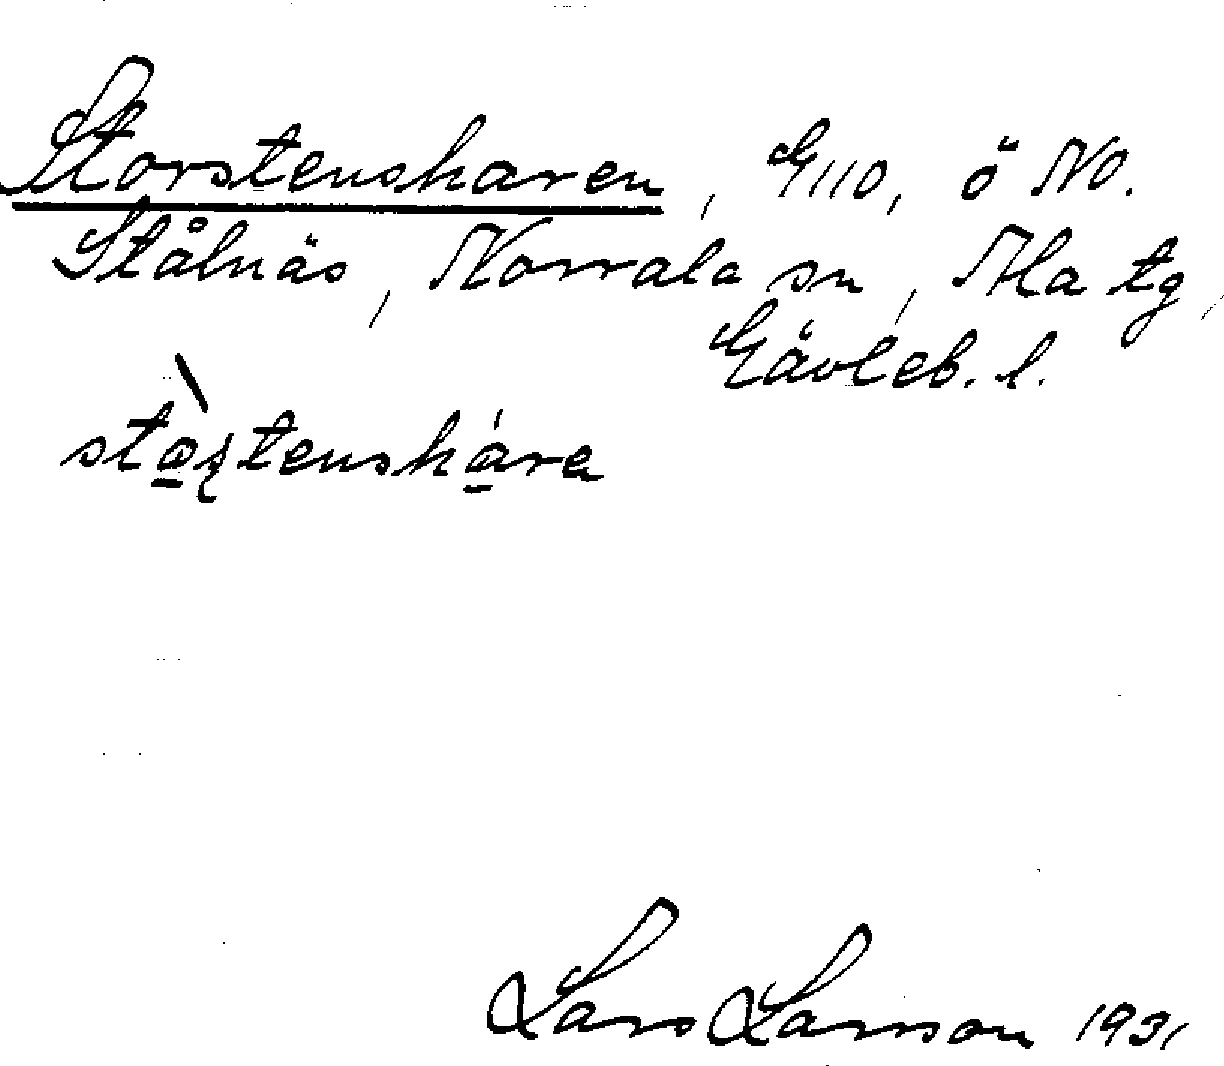 Storstensharen, G110, ö NO.
Stålnäs, Norrala sn, Ala tg,
Gävleb. l.
stǫ̀ʂtensha̱̍ra
Lars Larsson 1931